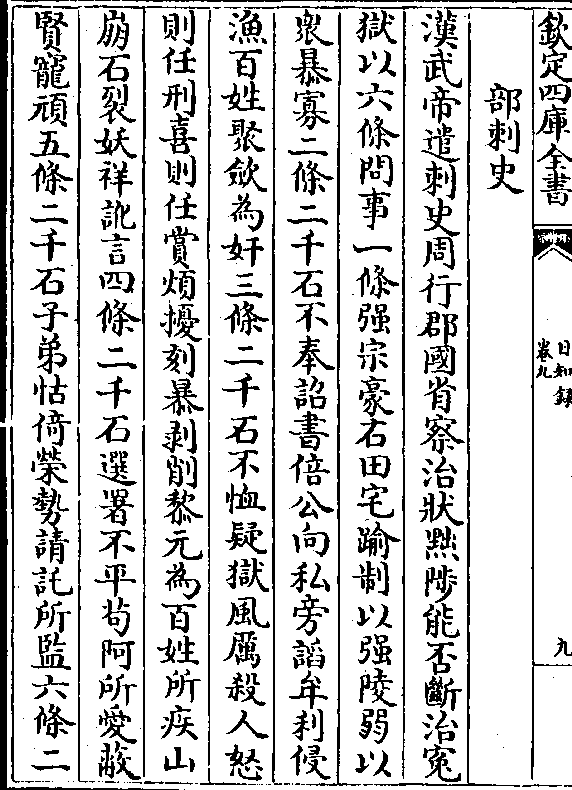 欽定四庫全書
日知錄
卷九
九
部刺史
漢武帝遣刺史周行郡國省察治狀黜陟能否斷治寃
獄以六條問事一條强宗豪右田宅踰制以强陵弱以
衆暴寡二條二千石不奉詔書倍公向私旁謟牟利侵
漁百姓聚歛為奸三條二千石不恤疑獄風厲殺人怒
則任刑喜則任賞煩擾刻暴剥削黎元為百姓所疾山
崩石裂妖祥訛言四條二千石選署不平苟阿所愛蔽
賢寵頑五條二千石子弟怙倚榮勢請託所監六條二